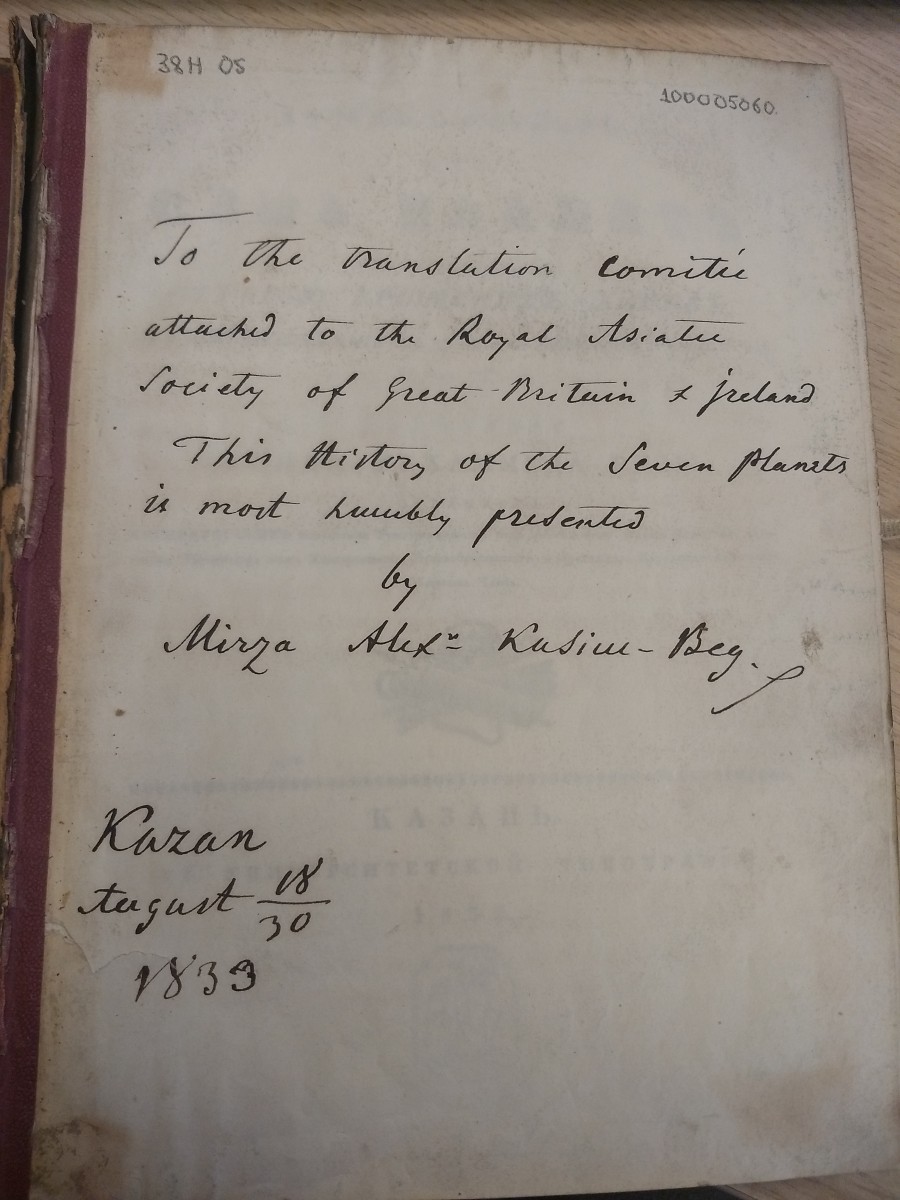 38H 05
100005060
To the translation Comitie
attached to the Royal Asiatic
Society of Great-Britain & Jreland
This History of the Seven Planets
is most humbly presented
by
Mirza Alexʳ Kasim-Beg.
Kazan
August 18/30
1833
КАЗАНЬ